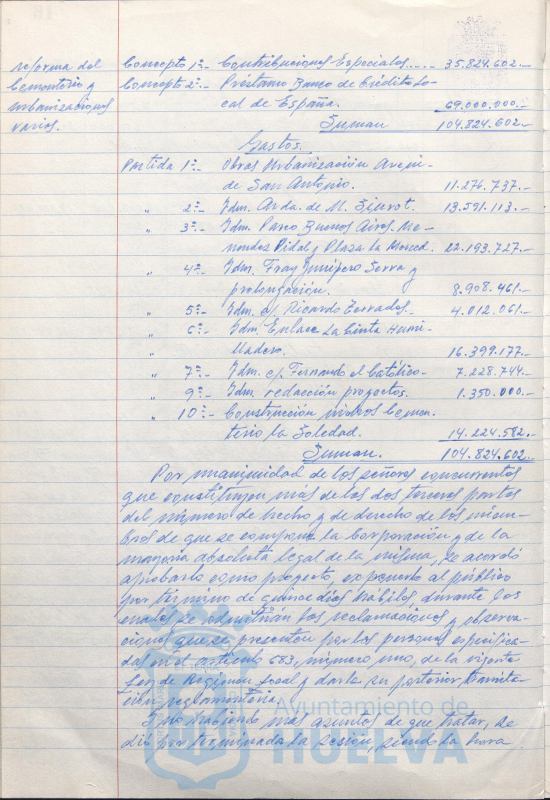 reforma del
Cementerio y
urbanizaciones
varias.
Concepto 1º.- Contribuciones Especiales..... 35.824.602.-
Concepto 2º.- Préstamo Banco de Crédito Lo-
cal de España. 69.000.000.-
Suman 104.824.602.-
Gastos.
Partida 1ª.- Obras Urbanización Avqui-
de San Antonio. 11.274.737.-
" 2ª.- Idm. Avda. de M. Siurot. 13.591.113.-
" 3ª.- Idm. Parco Buenos Aires Me-
nendez Pidal y Plaza la Merced. 22.193.727.-
" 4ª.- Idm. Fray Junípero Serra y
prolongación. 8.908.461.-
" 5ª.- Idm. c/ Ricardo Terrades.- 4.012.061.-
" 6ª.- Idm. Enlace La Cinta Humi-
lladero. 16.399.177.-
" 7ª.- Idm. c/. Fernando el Católico.- 7.228.744.-
" 9ª.- Idm. redacción proyectos. 1.350.000.-
" 10ª.- Construcción nichos Cemen-
terio la Soledad. 14.224.582.-
Suman. 104.824.602.-
Por unanimidad de los señores concurrentes
que constituyen más de las dos terceras partes
del número de hecho y de derecho de los miem-
bros de que se compone la Corporación y de la
mayoria absoluta legal de la misma, se acordó
aprobarlo como proyecto, exponerlo al público
por término de quince días hábiles, durante los
cuales se admitirán las reclamaciones y observa-
ciones que se presenten por las personas especifica-
das en el artículo 683, número uno, de la vigente
Ley de Regimen Local y darle su posterior tramita-
ción reglamentaria.
Y no habiendo más asuntos de que tratar, se
dió por terminada la sesión, siendo la hora
Ayuntamiento de
HUELVA